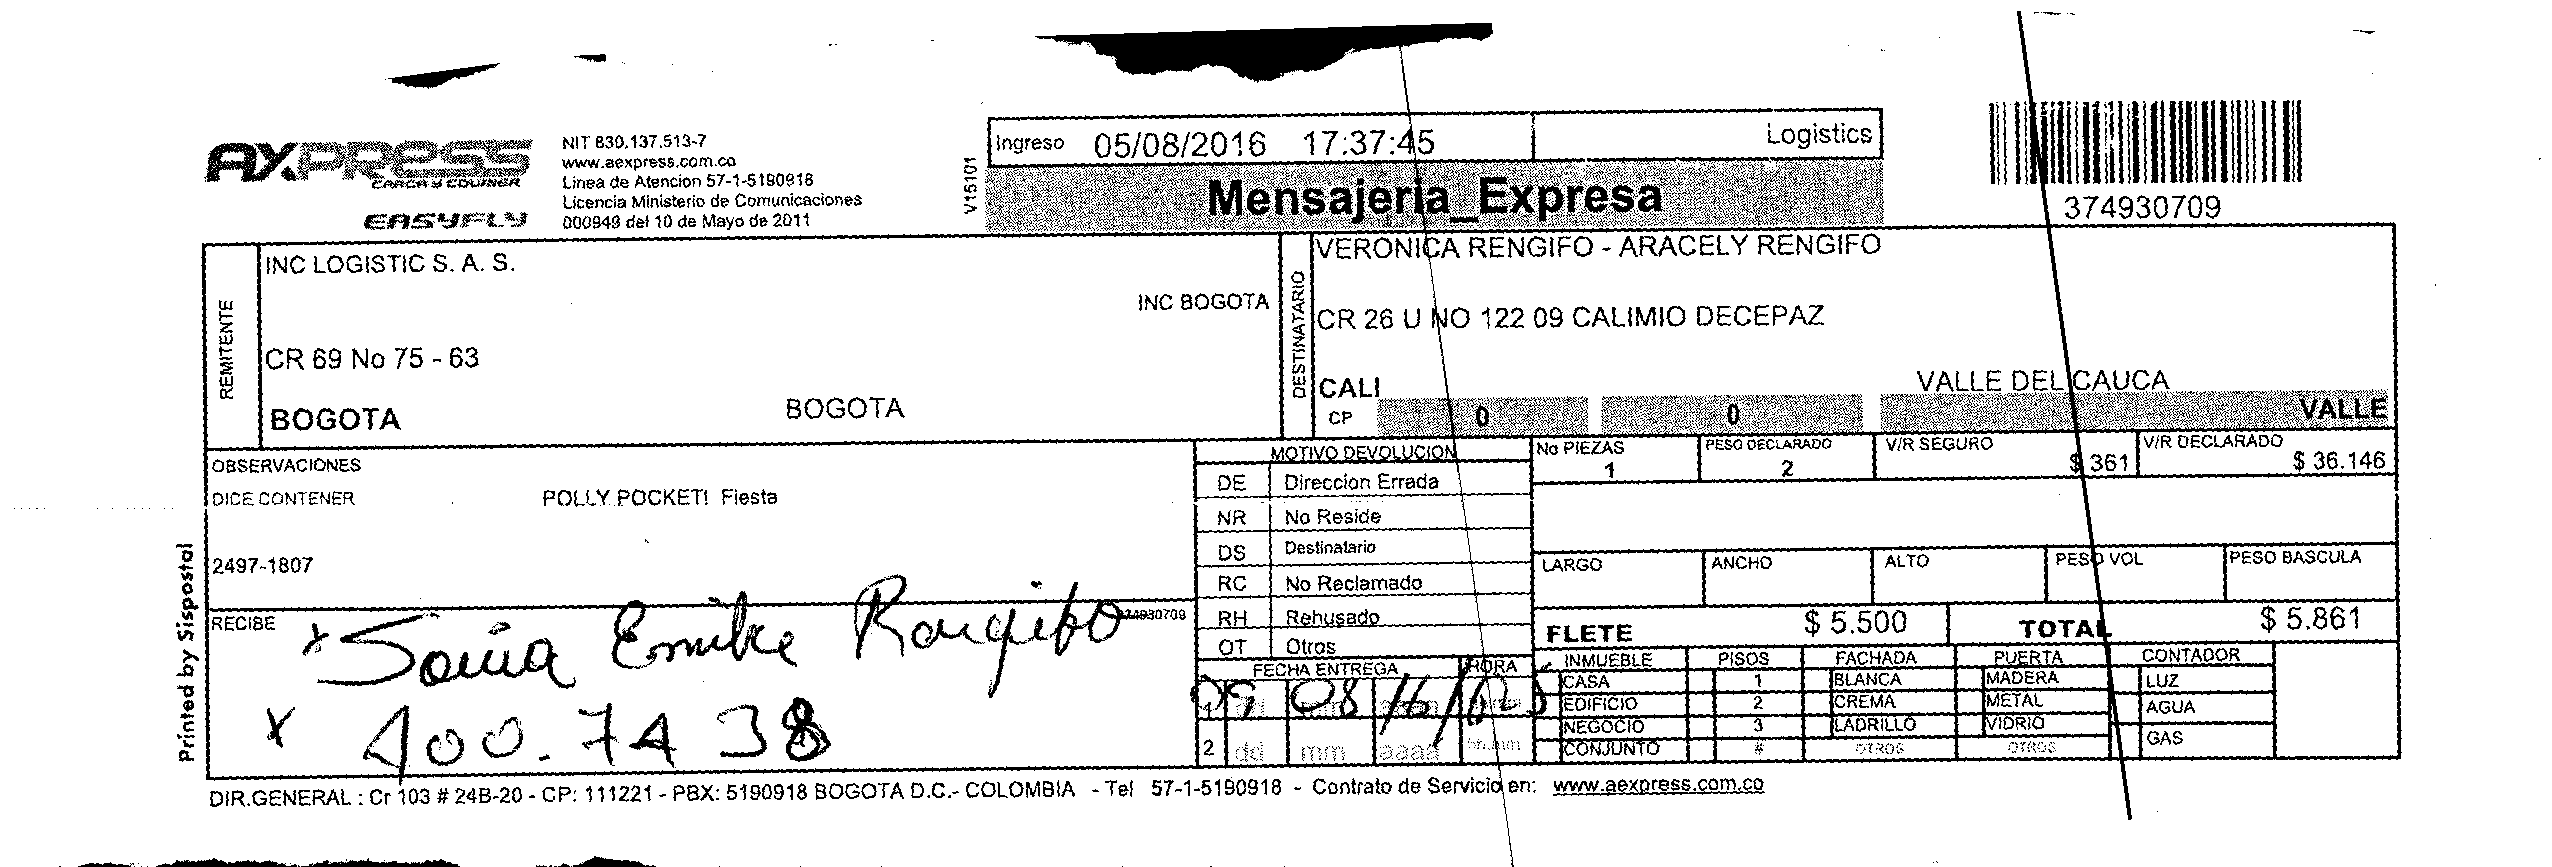 AXPRESS
CARGA Y COURIER
EASYFLY
NIT 830.137.513-7
www.aexpress.com.co
Linea de Atencion 57-1-5190918
Licencia Ministerio de Comunicaciones
000949 del 10 de Mayo de 2011
V15101
Ingreso 05/08/2016 17:37:45 Logistics
Mensajeria_Expresa
374930709
REMITENTE
INC LOGISTIC S. A. S.
INC BOGOTA
CR 69 No 75 - 63
BOGOTA BOGOTA
DESTINATARIO
VERONICA RENGIFO - ARACELY RENGIFO
CR 26 U NO 122 09 CALIMIO DECEPAZ
CALI VALLE DEL CAUCA
CP 0 0 VALLE
OBSERVACIONES
DICE CONTENER POLLY POCKET! Fiesta
2497-1807
MOTIVO DEVOLUCION
DE Direccion Errada
NR No Reside
DS Destinatario
RC No Reclamado
RH Rehusado
OT Otros
No PIEZAS 1
PESO DECLARADO 2
V/R SEGURO $ 361
V/R DECLARADO $ 36.146
LARGO ANCHO ALTO PESO VOL PESO BASCULA
FLETE $ 5.500 TOTAL $ 5.861
RECIBE
374930709
x Sonia Rengifo
x 400.7438
FECHA ENTREGA HORA
1 09 08 16
2 dd mm aaaa hh:mm
INMUEBLE PISOS FACHADA PUERTA CONTADOR
CASA 1 BLANCA MADERA LUZ
EDIFICIO 2 CREMA METAL AGUA
NEGOCIO 3 LADRILLO VIDRIO
CONJUNTO # OTROS OTROS GAS
Printed by Sispostal
DIR.GENERAL : Cr 103 # 24B-20 - CP: 111221 - PBX: 5190918 BOGOTA D.C.- COLOMBIA - Tel 57-1-5190918 - Contrato de Servicio en: www.aexpress.com.co